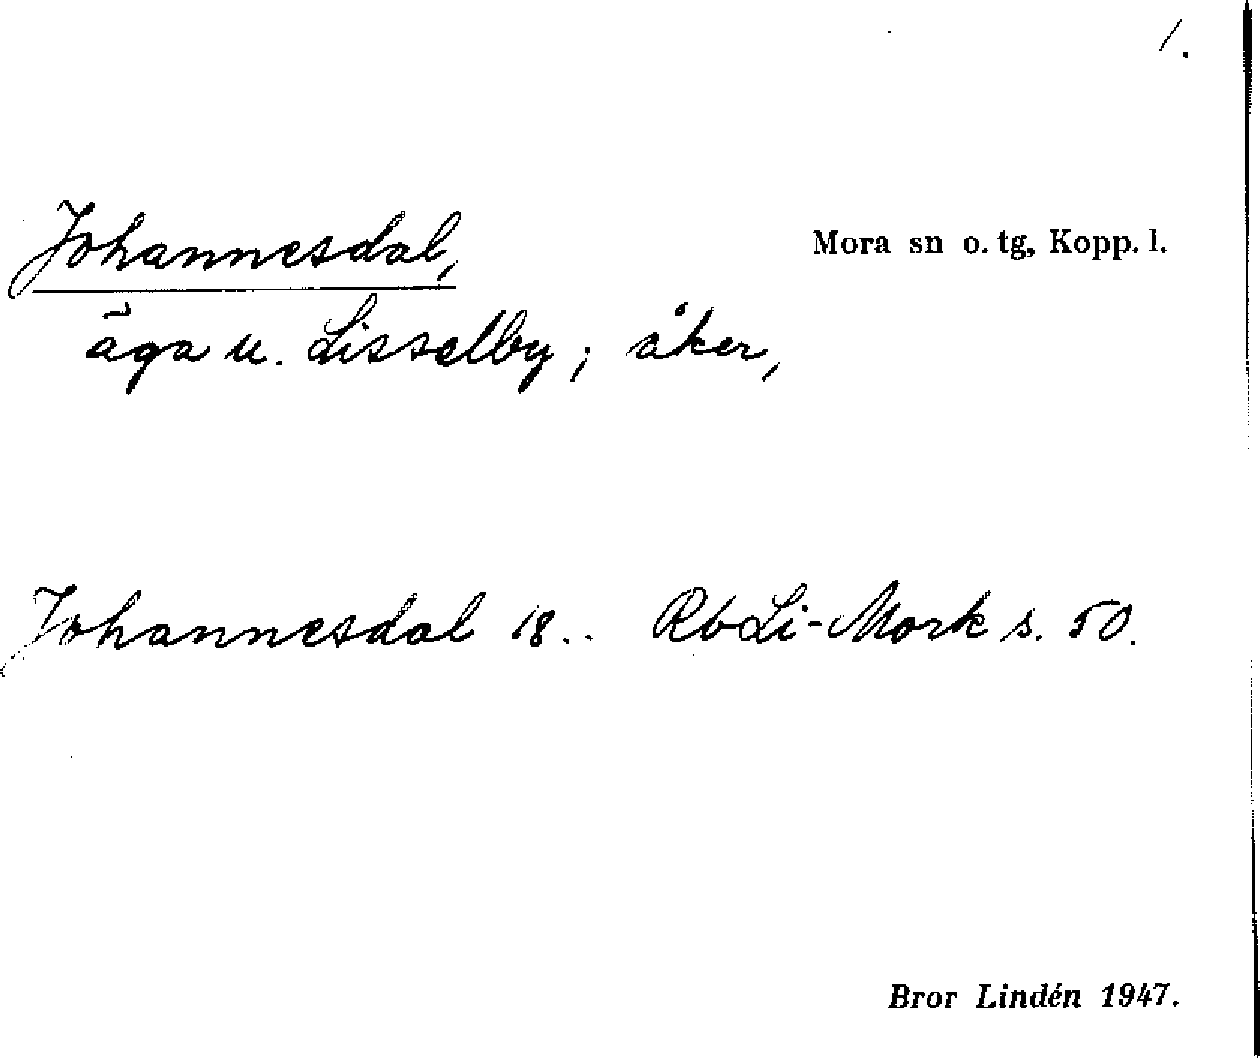 1.
Johannesdal, Mora sn o. tg, Kopp. l.
äga u. Lisselby; åker,
Johannesdal 18.. RbLi-Mork s. 50.
Bror Lindén 1947.